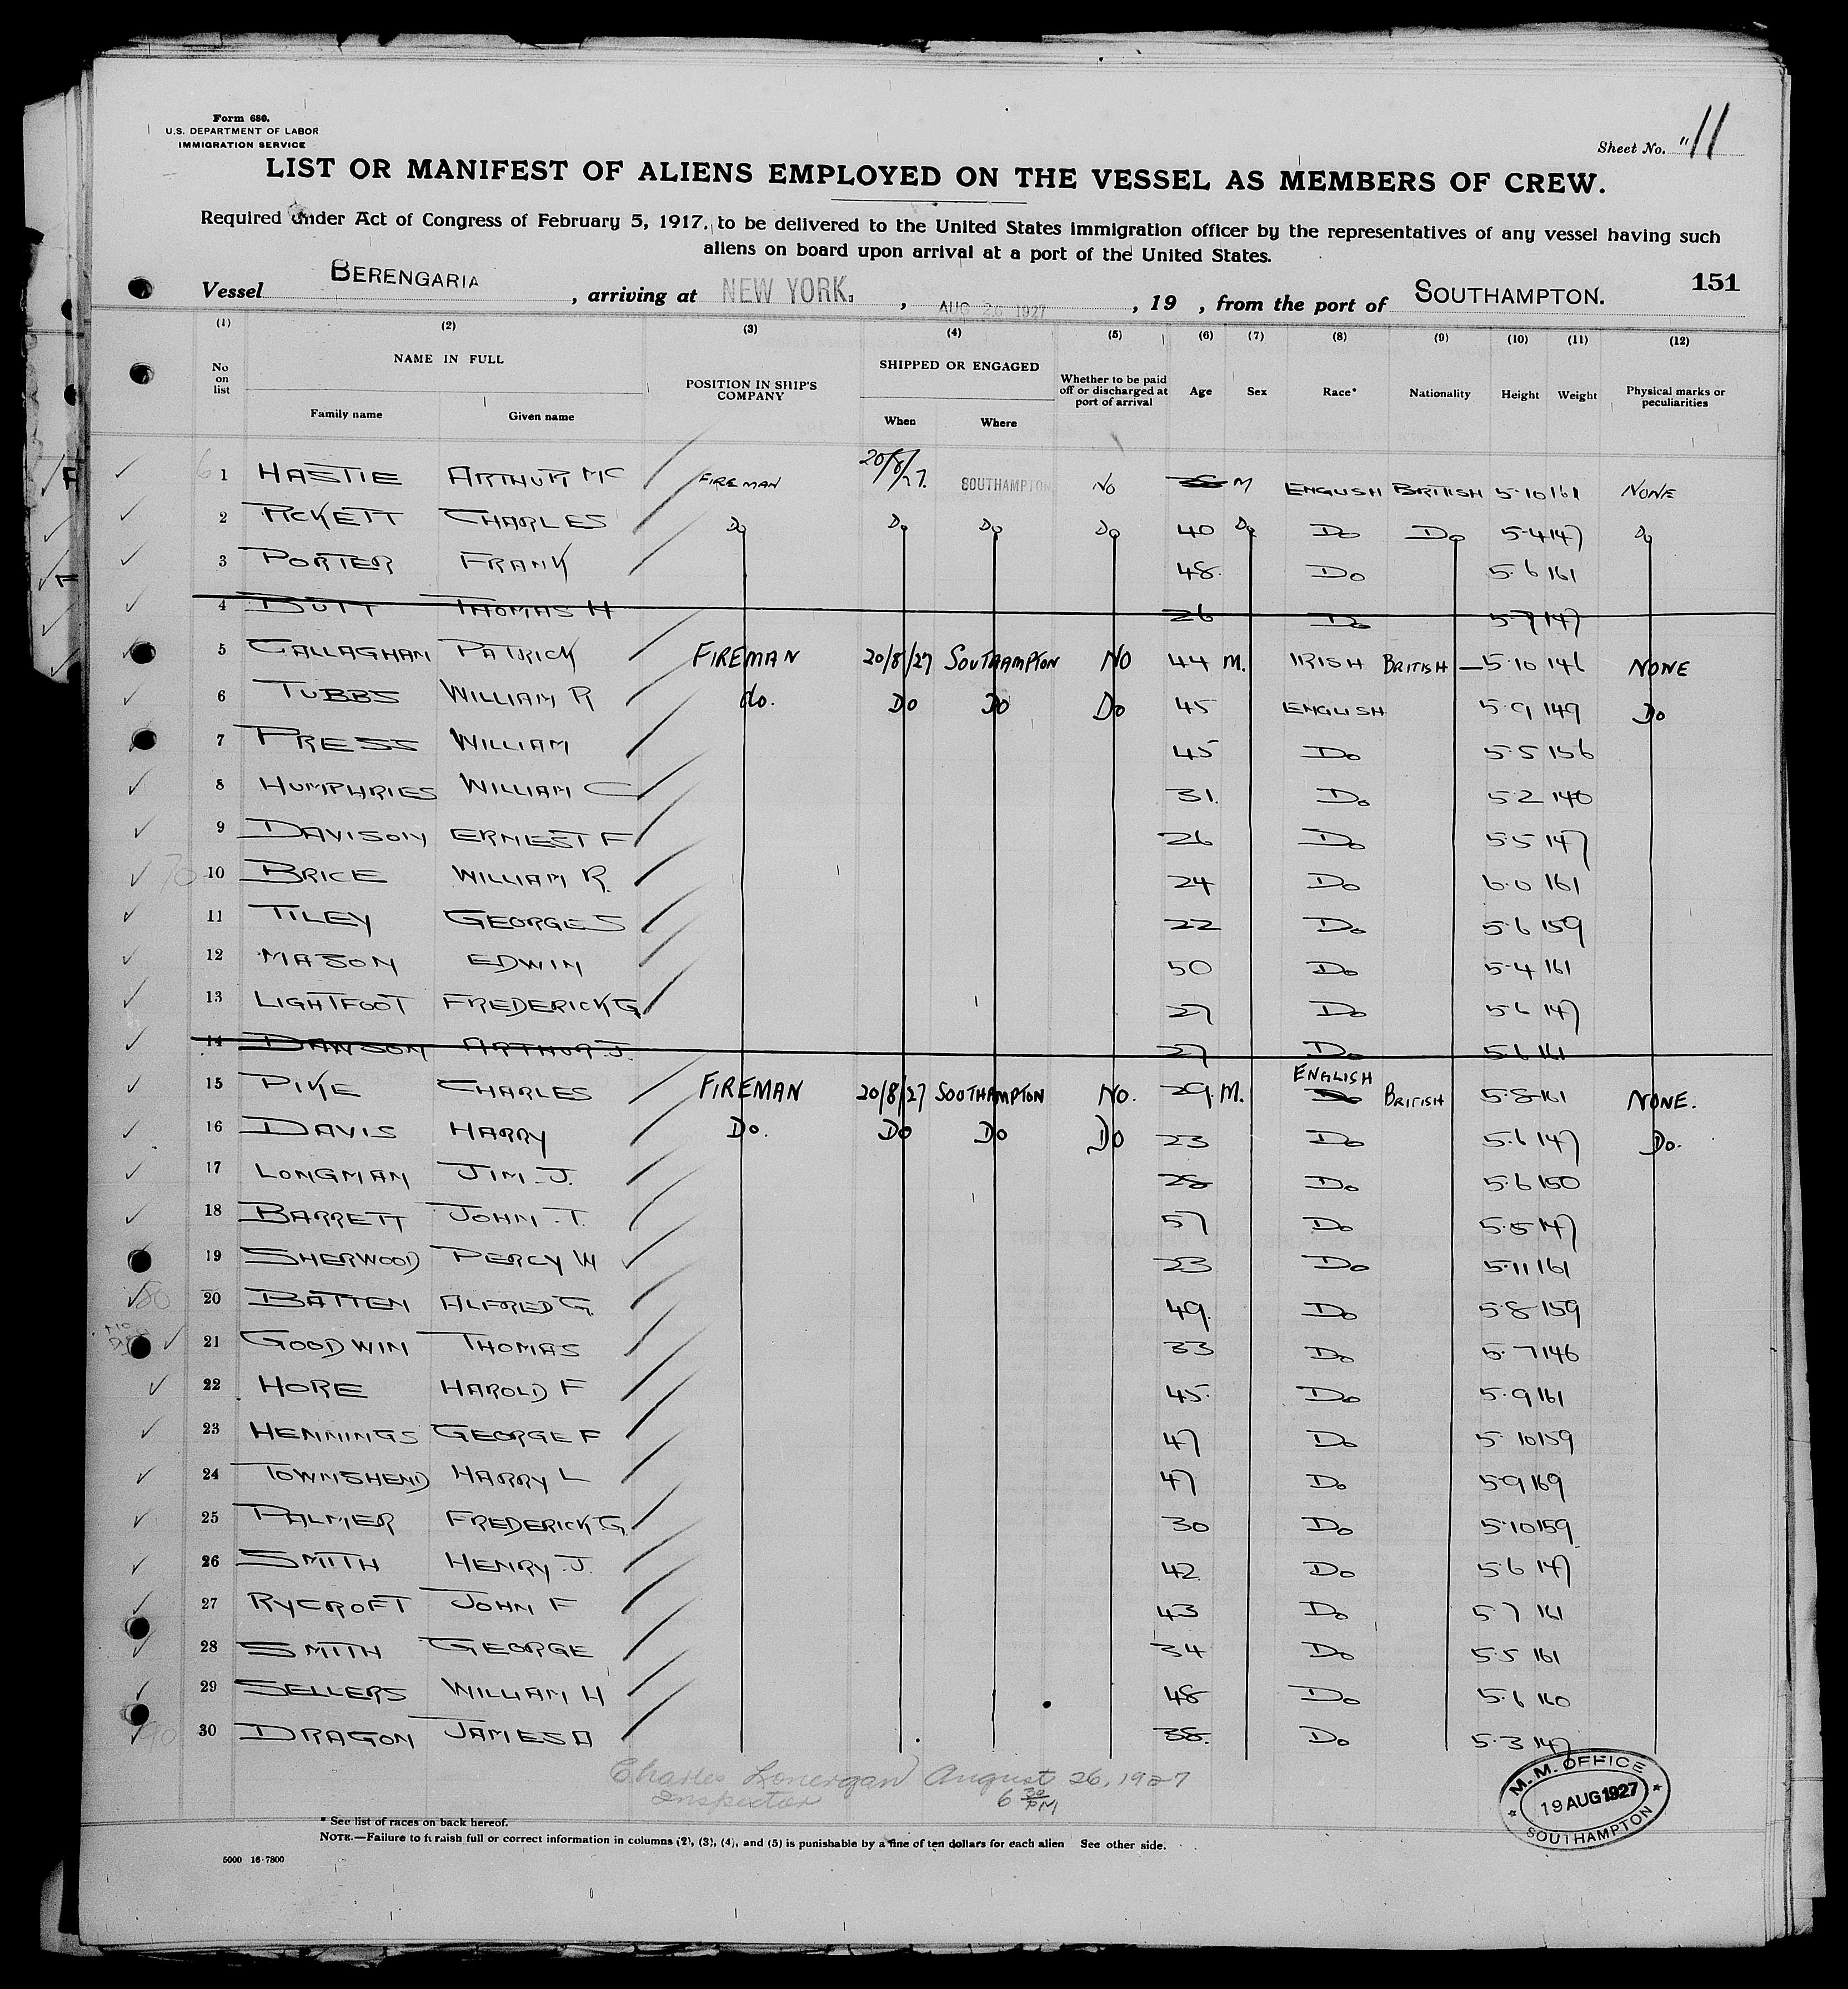 Form 680.
U.S. DEPARTMENT OF LABOR
IMMIGRATION SERVICE
Sheet No. "11
LIST OR MANIFEST OF ALIENS EMPLOYED ON THE VESSEL AS MEMBERS OF CREW.
Required under Act of Congress of February 5, 1917, to be delivered to the United States immigration officer by the representatives of any vessel having such
aliens on board upon arrival at a port of the United States.
151
Vessel BERENGARIA, arriving at NEW YORK., AUG 26 1927, 19 , from the port of SOUTHAMPTON.
(1) (2) (3) (4) (5) (6) (7) (8) (9) (10) (11) (12)
No on list NAME IN FULL Family name Given name POSITION IN SHIP'S COMPANY SHIPPED OR ENGAGED When Where Whether to be paid off or discharged at port of arrival Age Sex Race* Nationality Height Weight Physical marks or peculiarities
1 HASTIE ARTHUR MC FIREMAN 20/8/27. SOUTHAMPTON NO M ENGLISH BRITISH 5-10 161 NONE
2 PICKETT CHARLES Do Do Do Do 40 Do Do Do 5-4 147 Do
3 PORTER FRANK 48. Do 5.6 161
4 BUTT THOMAS H 26 Do 5-7 147
5 CALLAGHAN PATRICK FIREMAN 20/8/27 SOUTHAMPTON NO 44 M. IRISH BRITISH 5-10 146 NONE
6 TUBBS WILLIAM R do. Do Do Do 45 ENGLISH 5.9 149 Do
7 PRESS WILLIAM 45 Do 5.5 156
8 HUMPHRIES WILLIAM C 31. Do 5.2 140
9 DAVISON ERNEST F 26 Do 5.5 147
70 10 BRICE WILLIAM R. 24 Do 6.0 161
11 TILEY GEORGE S 22 Do 5.6 159
12 MASON EDWIN 50 Do 5-4 161
13 LIGHTFOOT FREDERICK G 27 Do 5.6 147
14 DAWSON ARTHUR. J. 27 Do 5.6 161
15 PIKE CHARLES FIREMAN 20/8/27 SOUTHAMPTON NO. 29. M. Do ENGLISH BRITISH 5.8 161 NONE.
16 DAVIS HARRY Do. Do Do Do 23 Do 5.6 147 Do.
17 LONGMAN JIM. J. 28 Do 5.6 150
18 BARRETT JOHN. T. 57 Do 5.5 147
19 SHERWOOD PERCY W 23 Do 5.11 161
80 20 BATTEN ALFRED G. 49. Do 5.8 159
21 GOODWIN THOMAS 33 Do 5.7 146
22 HORE HAROLD F 45. Do 5.9 161
23 HENNINGS GEORGE F 47 Do 5.10 159
24 TOWNSHEND HARRY L 47 Do 5.9 169
25 PALMER FREDERICK G. 30 Do 5.10 159
26 SMITH HENRY. J. 42. Do 5.6 147
27 RYCROFT JOHN F 43 Do 5.7 161
28 SMITH GEORGE 34 Do 5.5 161
29 SELLERS WILLIAM H 48 Do 5.6 160
90 30 DRAGON JAMES A 38. Do 5.3 147
Charles Lonergan August 26, 1927
Inspector 6 30 PM
M. M. OFFICE
19 AUG 1927
SOUTHAMPTON
* See list of races on back hereof.
NOTE.—Failure to furnish full or correct information in columns (2), (3), (4), and (5) is punishable by a fine of ten dollars for each alien See other side.
5000 16-7800